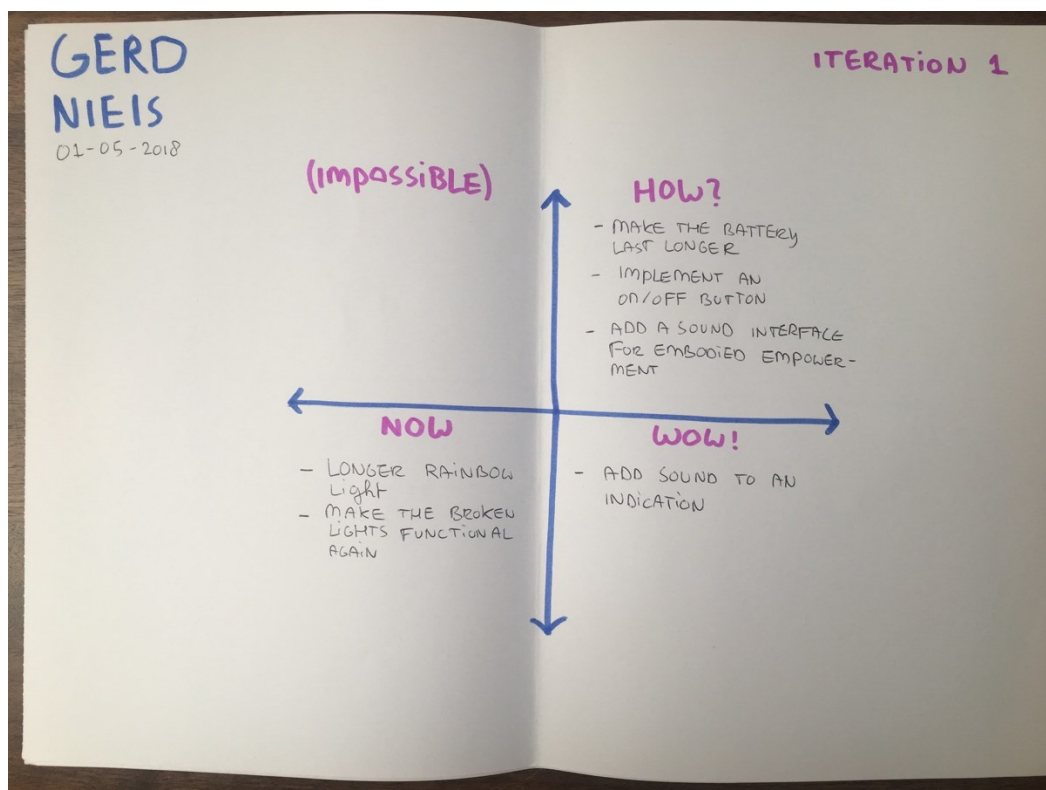 GERD
NIEIS
01-05-2018
ITERATION 1
(IMPOSSIBLE)
HOW?
- MAKE THE BATTERY
LAST LONGER
- IMPLEMENT AN
ON/OFF BUTTON
- ADD A SOUND INTERFACE
FOR EMBODIED EMPOWER-
MENT
NOW
- LONGER RAINBOW
Light
- MAKE THE BROKEN
LIGHTS FUNCTIONAL
AGAIN
WOW!
- ADD SOUND TO AN
INDICATION